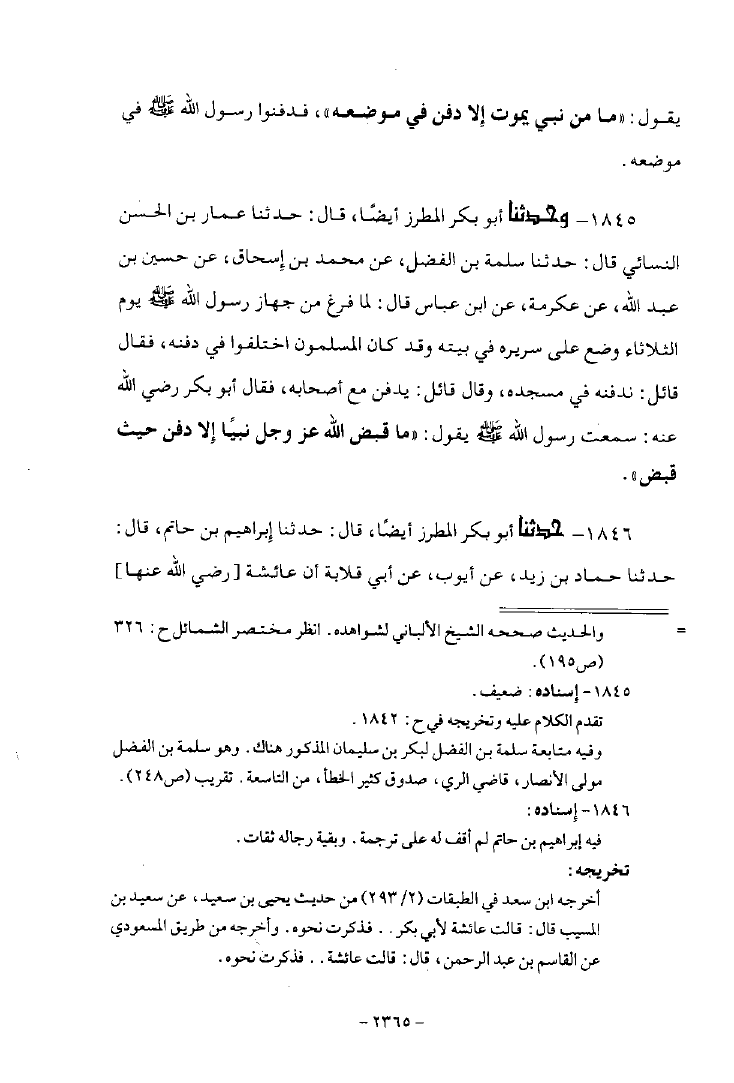 يقـول : «مـا من نبي يموت إلا دفن في موضعـه» ، فـدفنوا رسـول الله ﷺ في
موضعه .
١٨٤٥– وحدثنا أبو بكر المطرز أيضًا، قال : حدثنا عمار بن الحسن
النسائي قال : حدثنا سلمة بن الفضل، عن محمد بن إسحاق، عن حسين بن
عبد الله، عن عكرمة، عن ابن عباس قال : لما فرغ من جهاز رسول الله ﷺ يوم
الثلاثاء وضع على سريره في بيته وقد كان المسلمون اختلفوا في دفنه، فقال
قائل : ندفنه في مسجده، وقال قائل : يدفن مع أصحابه، فقال أبو بكر رضي الله
عنه : سمعت رسول الله ﷺ يقول : «ما قبض الله عز وجل نبيًا إلا دفن حيث
قبض» .
١٨٤٦– حدثنا أبو بكر المطرز أيضًا، قال : حدثنا إبراهيم بن حاتم، قال :
حدثنا حماد بن زيد، عن أيوب، عن أبي قلابة أن عائشة [رضي الله عنها]
= والحديث صححه الشيخ الألباني لشواهده . انظر مختصر الشمائل ح : ٣٢٦
(ص١٩٥) .
١٨٤٥– إسناده : ضعيف .
تقدم الكلام عليه وتخريجه في ح : ١٨٤٢ .
وفيه متابعة سلمة بن الفضل لبكر بن سليمان المذكور هناك . وهو سلمة بن الفضل
مولى الأنصار، قاضي الري، صدوق كثير الخطأ، من التاسعة . تقريب (ص٢٤٨) .
١٨٤٦– إسناده :
فيه إبراهيم بن حاتم لم أقف له على ترجمة . وبقية رجاله ثقات .
تخريجه :
أخرجه ابن سعد في الطبقات (٢/ ٢٩٣) من حديث يحيى بن سعيد، عن سعيد بن
المسيب قال : قالت عائشة لأبي بكر . . فذكرت نحوه . وأخرجه من طريق المسعودي
عن القاسم بن عبد الرحمن، قال : قالت عائشة . . فذكرت نحوه .
– ٢٣٦٥ –